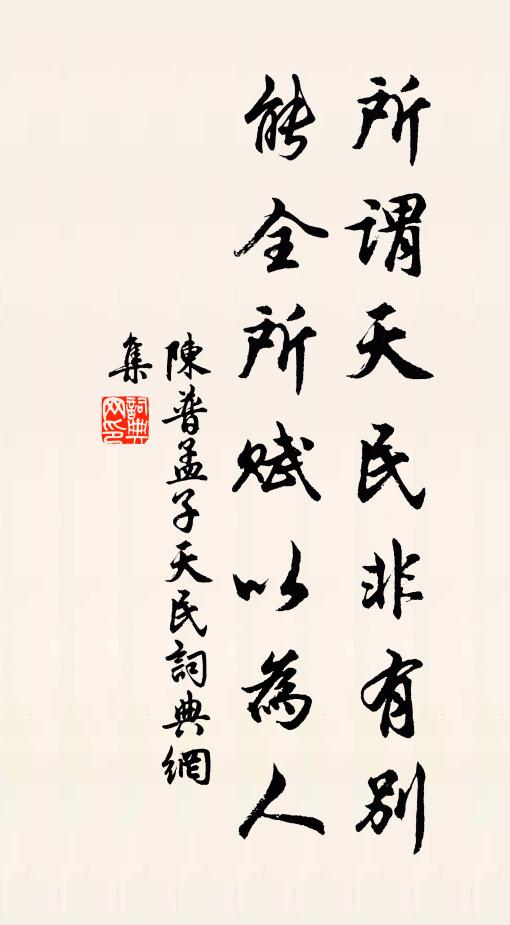 所謂天民非有別
能全所賦以為人
陳普孟子天民詞典網
集
詞典
网印